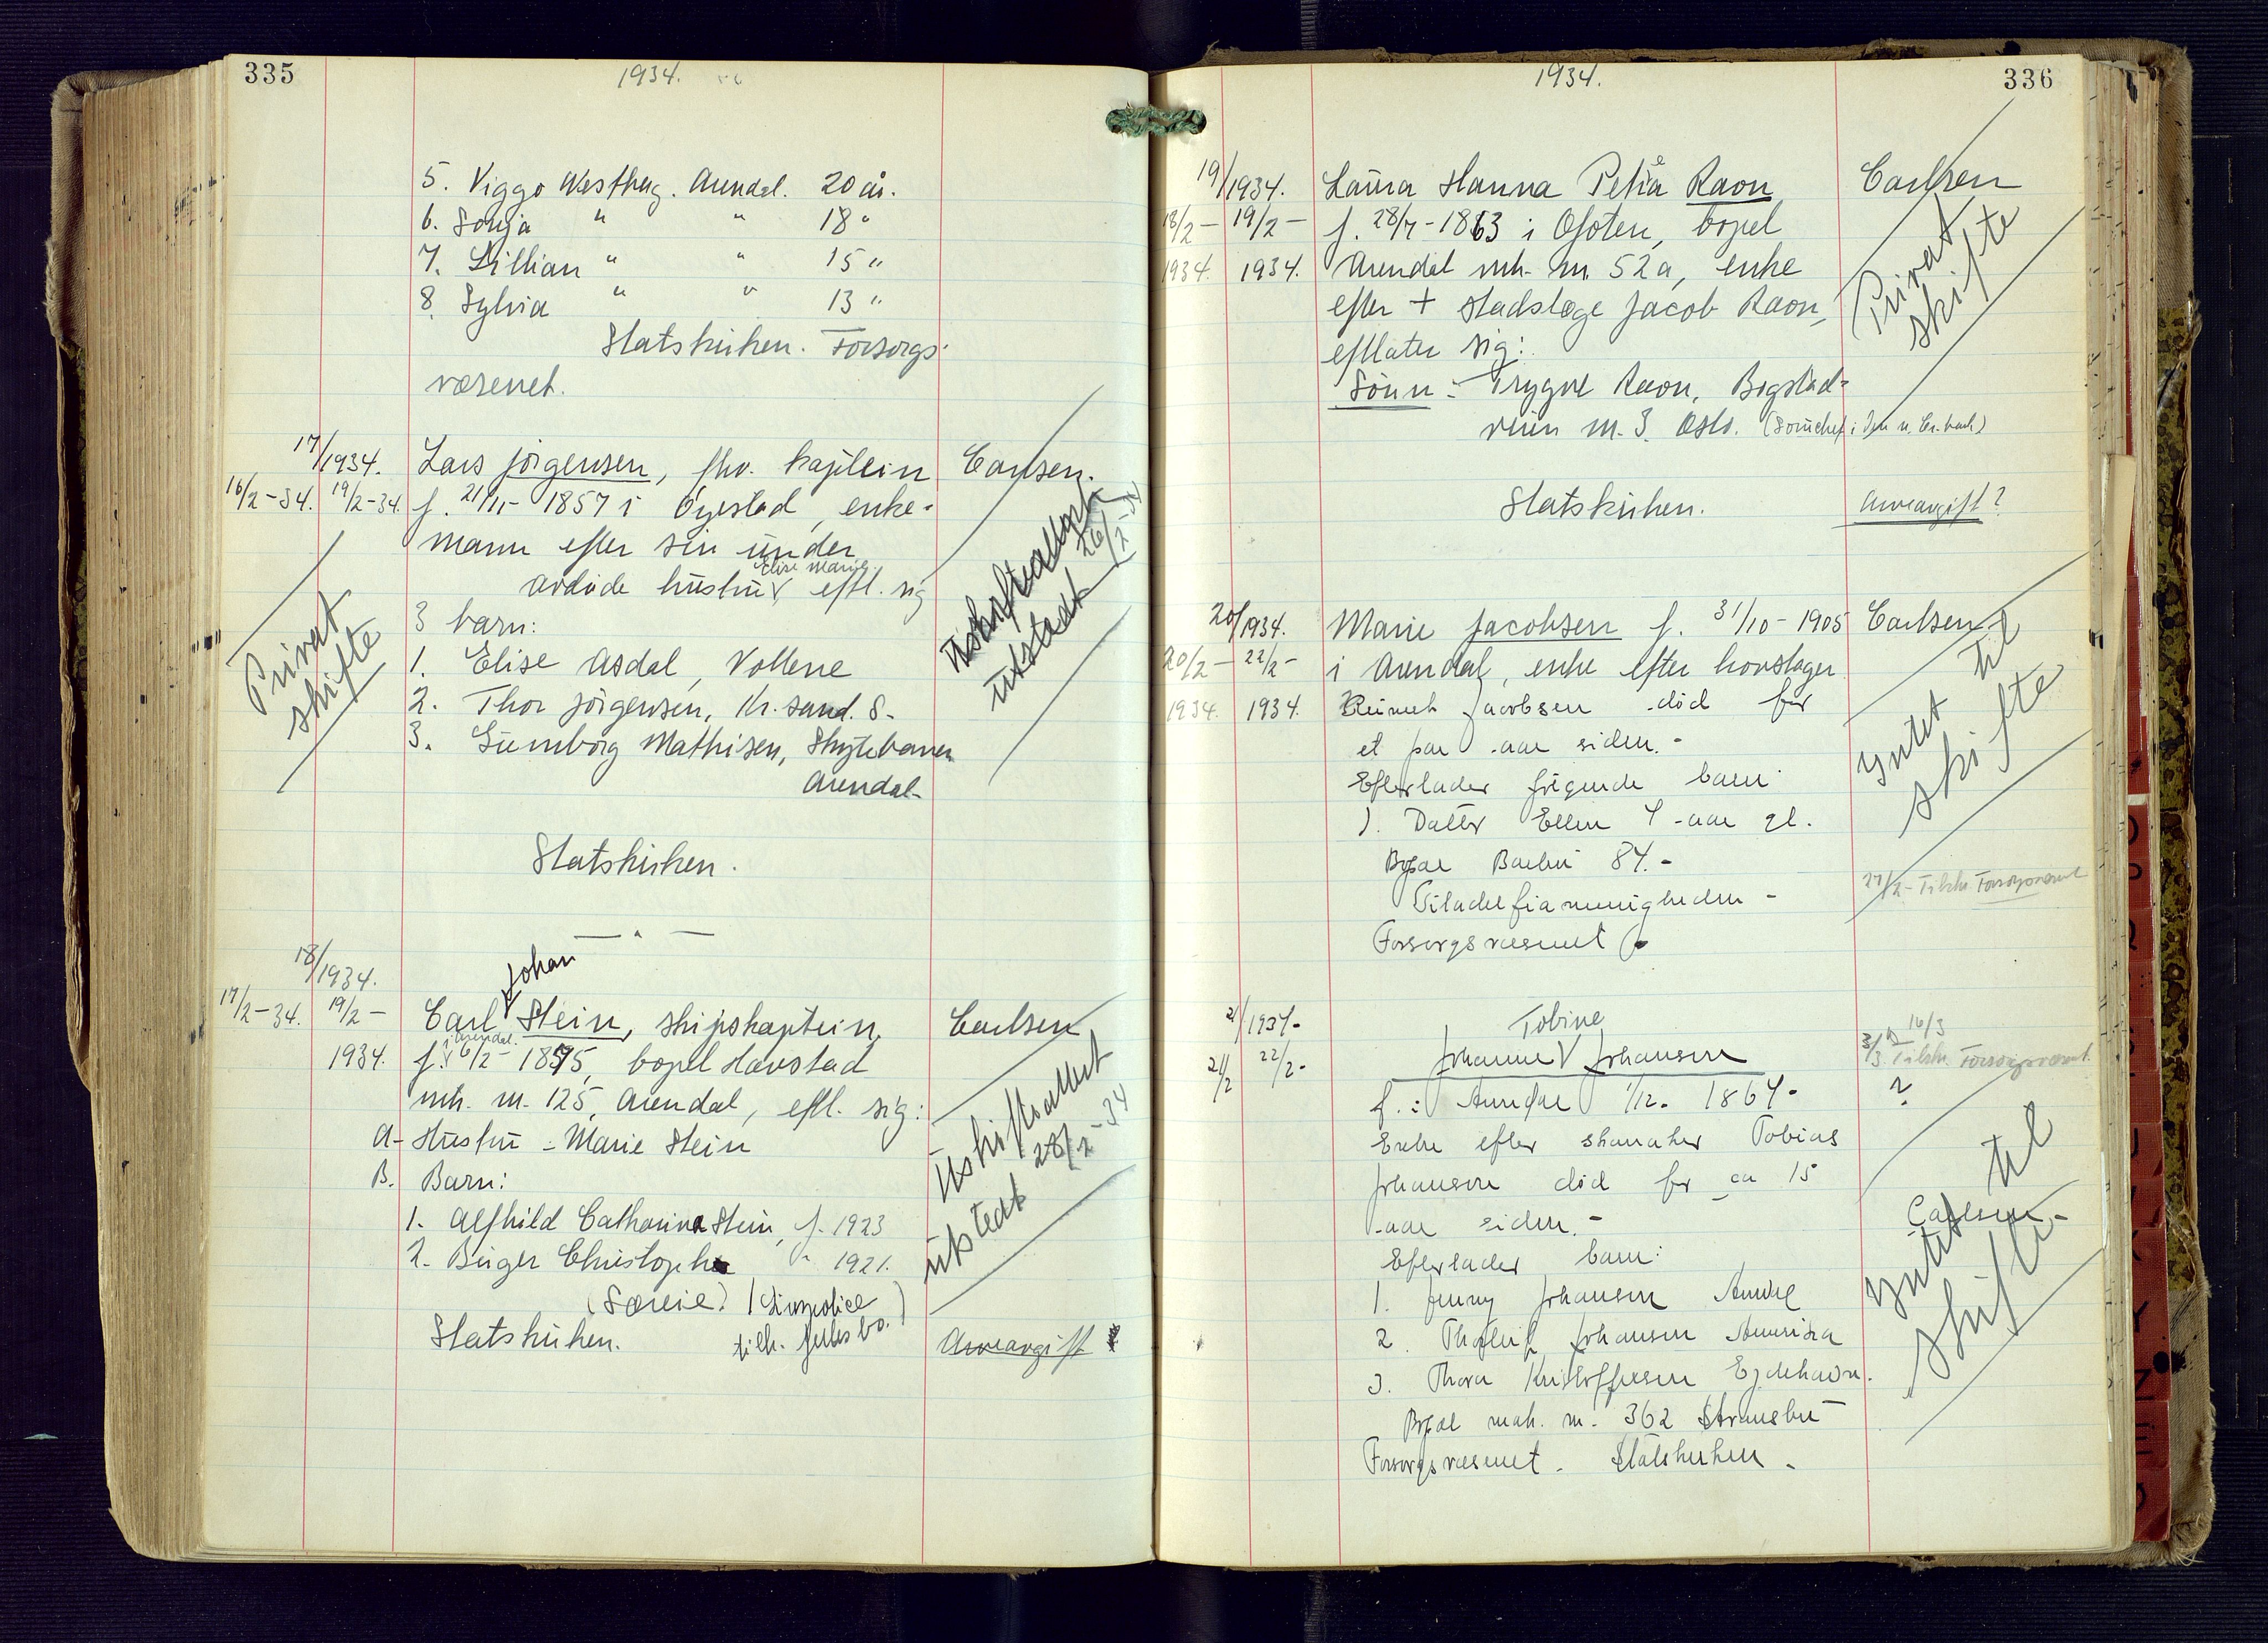 335
1934.
5. Viggo Westberg. Arendal. 20 år.
6. Sonja " " 18 "
7. Lillian " " 15 "
8. Sylvia " " 13 "
Statskirken. Forsorgs-
vesenet.
17/1934.
16/2-34. 19/2-34.
Lars Jörgensen, fhv. kaptein
f. 21/11- 1857 i Öyestad, enke-
mann efter sin ünder
avdöde hüstrü Elise Marie eftl. sig
3 barn:
1. Elise Asdal, Vollene
2. Thor Jörgensen, Kr.sand. S.
3. Gunnborg Mathisen, Skytebanen
Arendal.
Statskirken.
Privat
skifte
Carlsen.
Uskifteattest
utstedt 26/2-34
18/1934.
17/2-34. 19/2-
1934.
Carl Johan Stein, skipskaptein,
f. i Arendal. 6/2- 1875, bopel Havstad
mh. nr. 125, Arendal, eftl. sig:
A- Hüstrü - Marie Stein
B. Barn:
1. Alfhild Catharina Stein, f. 1923
2. Birger Christopher " 1921.
(Særeie) (Livspolice
tilh. felles bo.)
Statskirken.
Carlsen
Uskifteattest
utstedt 28/2-34
Arveavgift
336
1934.
19/1934.
18/2- 19/2-
1934. 1934.
Laüra Hanna Petrea Raon
f. 28/7-1863 i Ofoten, bopel
Arendal mh. nr. 52a, enke
efter + stadslæge Jacob Raon,
efterlater sig:
Sönn - Trygve Raon, Bogstad-
veien nr. 3. Oslo.
Statskirken.
Carlsen
Privat
skifte
Arveavgift?
20/1934.
20/2- 22/2-
1934. 1934.
Marie Jacobsen f. 31/10-1905
i Arendal, enke efter hovslager
Reinert Jacobsen död for
et par aar siden.-
Efterlader følgende barn:
1. Datter Ellen 4 aar gl.
Bopæl Barbu 84.-
Filadelfiamenigheden -
Forsorgsvesenet
Carlsen
Intet til
skifte
27/2- Tilskr. Forsorgsvesenet
21/1934-
21/2 22/2-
Tobine
Johanne V Johansen
f. i Arendal 1/12- 1864-
Enke efter skomaker Tobias
Johansen död for ca 15
aar siden.-
Efterlader barn:
1. Jenny Johansen Arendal
2. Thoralf Johansen Amerika
3. Thora Kristoffersen Eydehavn.
Bopæl mah. nr. 362 Strømsbu
Forsorgsvesenet. Statskirken.
16/3
3/3. Tilskr. Forsorgsvesenet.
?
Carlsen-
Intet til
skifte-